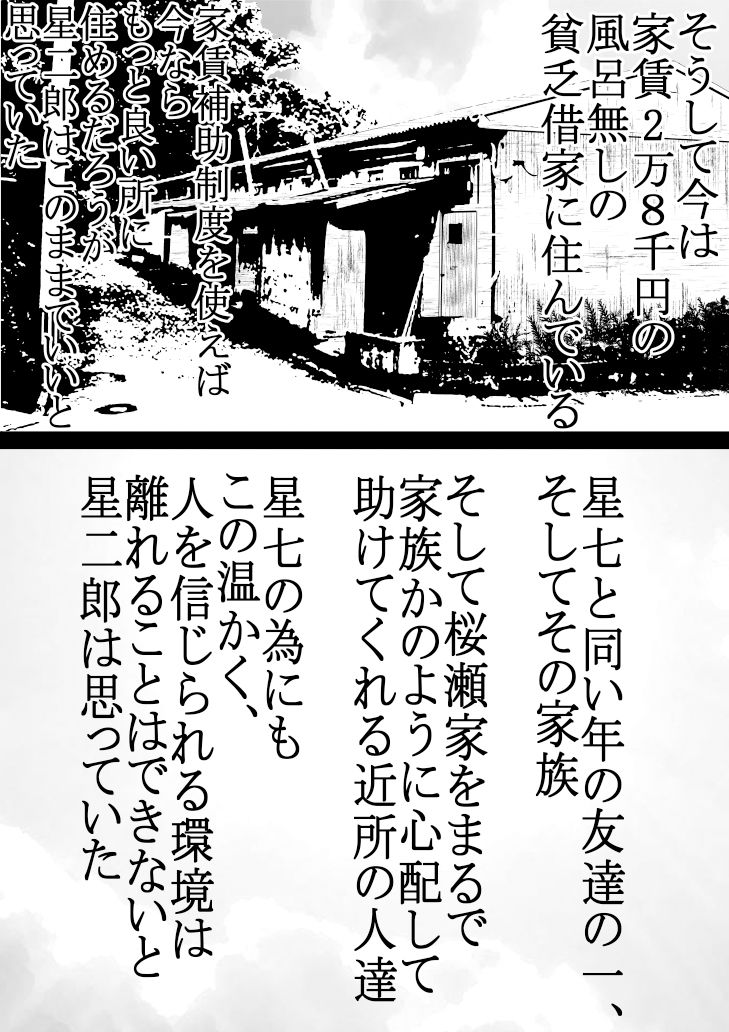 そうして今は
家賃2万8千円の
風呂無しの
貧乏借家に住んでいる
家賃補助制度を使えば
今なら
もっと良い所に
住めるだろうが
星二郎はこのままでいいと
思っていた
星七と同い年の友達の一、
そしてその家族
そして桜瀬家をまるで
家族かのように心配して
助けてくれる近所の人達
星七の為にも
この温かく、
人を信じられる環境は
離れることはできないと
星二郎は思っていた